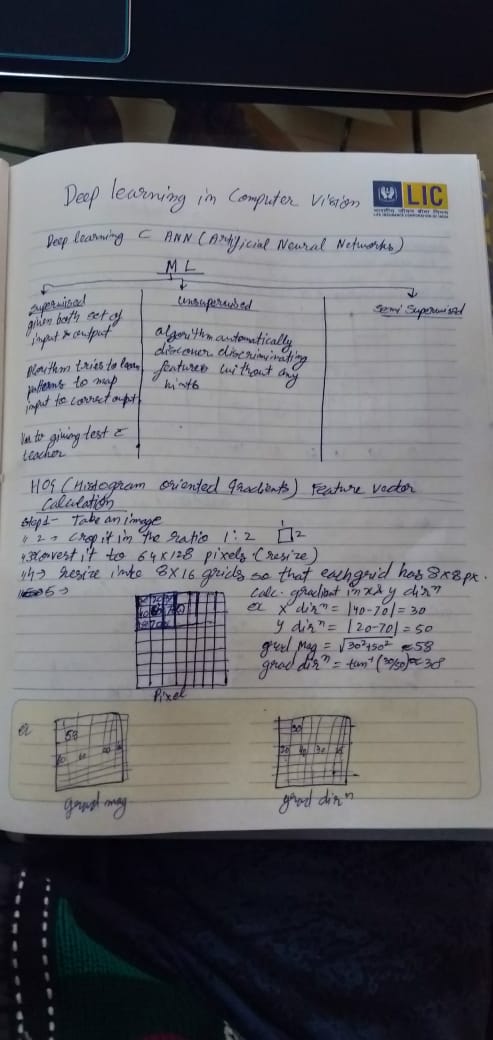 Deep learning in Computer Vision
LIC
भारतीय जीवन बीमा निगम
LIFE INSURANCE CORPORATION OF INDIA
Deep learning C ANN (Artificial Neural Networks)
ML
Supervised
given both set of
input & output
Algorithm tries to learn
patterns to map
input to correct output
to giving test
teacher
Unsupervised
algorithm automatically
discover discriminating
features without any
hints
Semi Supervised
HOG (Histogram oriented Gradients) Feature vector
Calculation
Step 1- Take an image
" 2 → crop it in the ratio 1:2 1 2
" 3 Convert it to 64x128 pixels (resize)
" 4 → Resize into 8X16 grids so that each grid has 8x8px.
5 → calc. gradient in x & y dirⁿ
ex X dirⁿ = |40-70| = 30
y dirⁿ = |20-70| = 50
grad Mag = √30²+50² ≈ 58
grad dirⁿ = tan⁻¹(30/50) ≈ 30
Pixel
ex
58
grad mag
30
grad dirⁿ